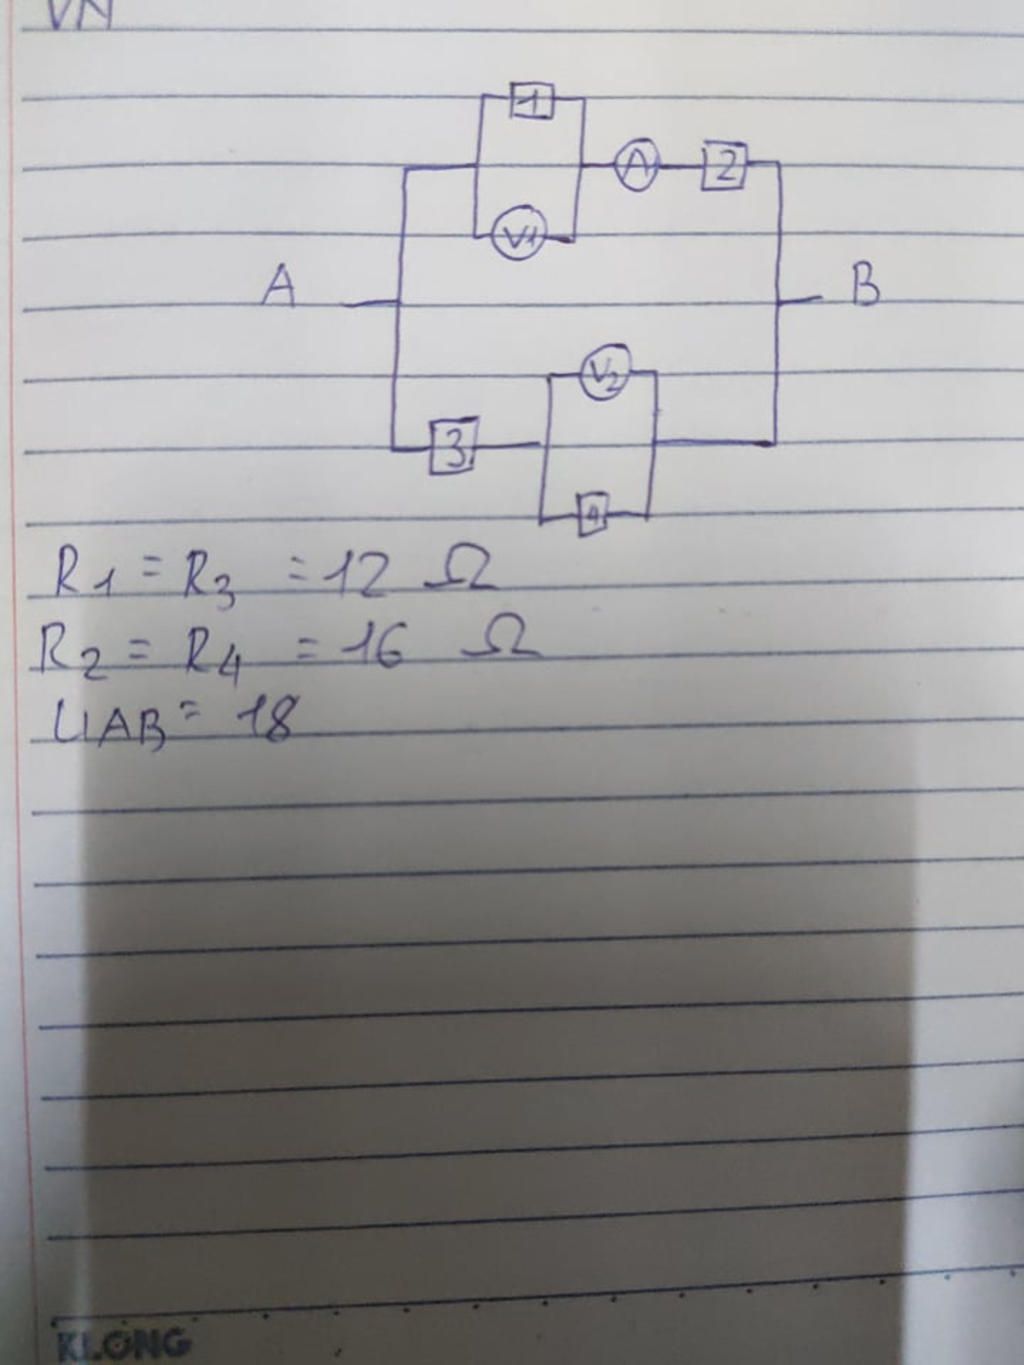 VN
1
A
2
V1
A
B
V2
3
4
R1 = R3 = 12 Ω
R2 = R4 = 16 Ω
UAB = 18
KLONG